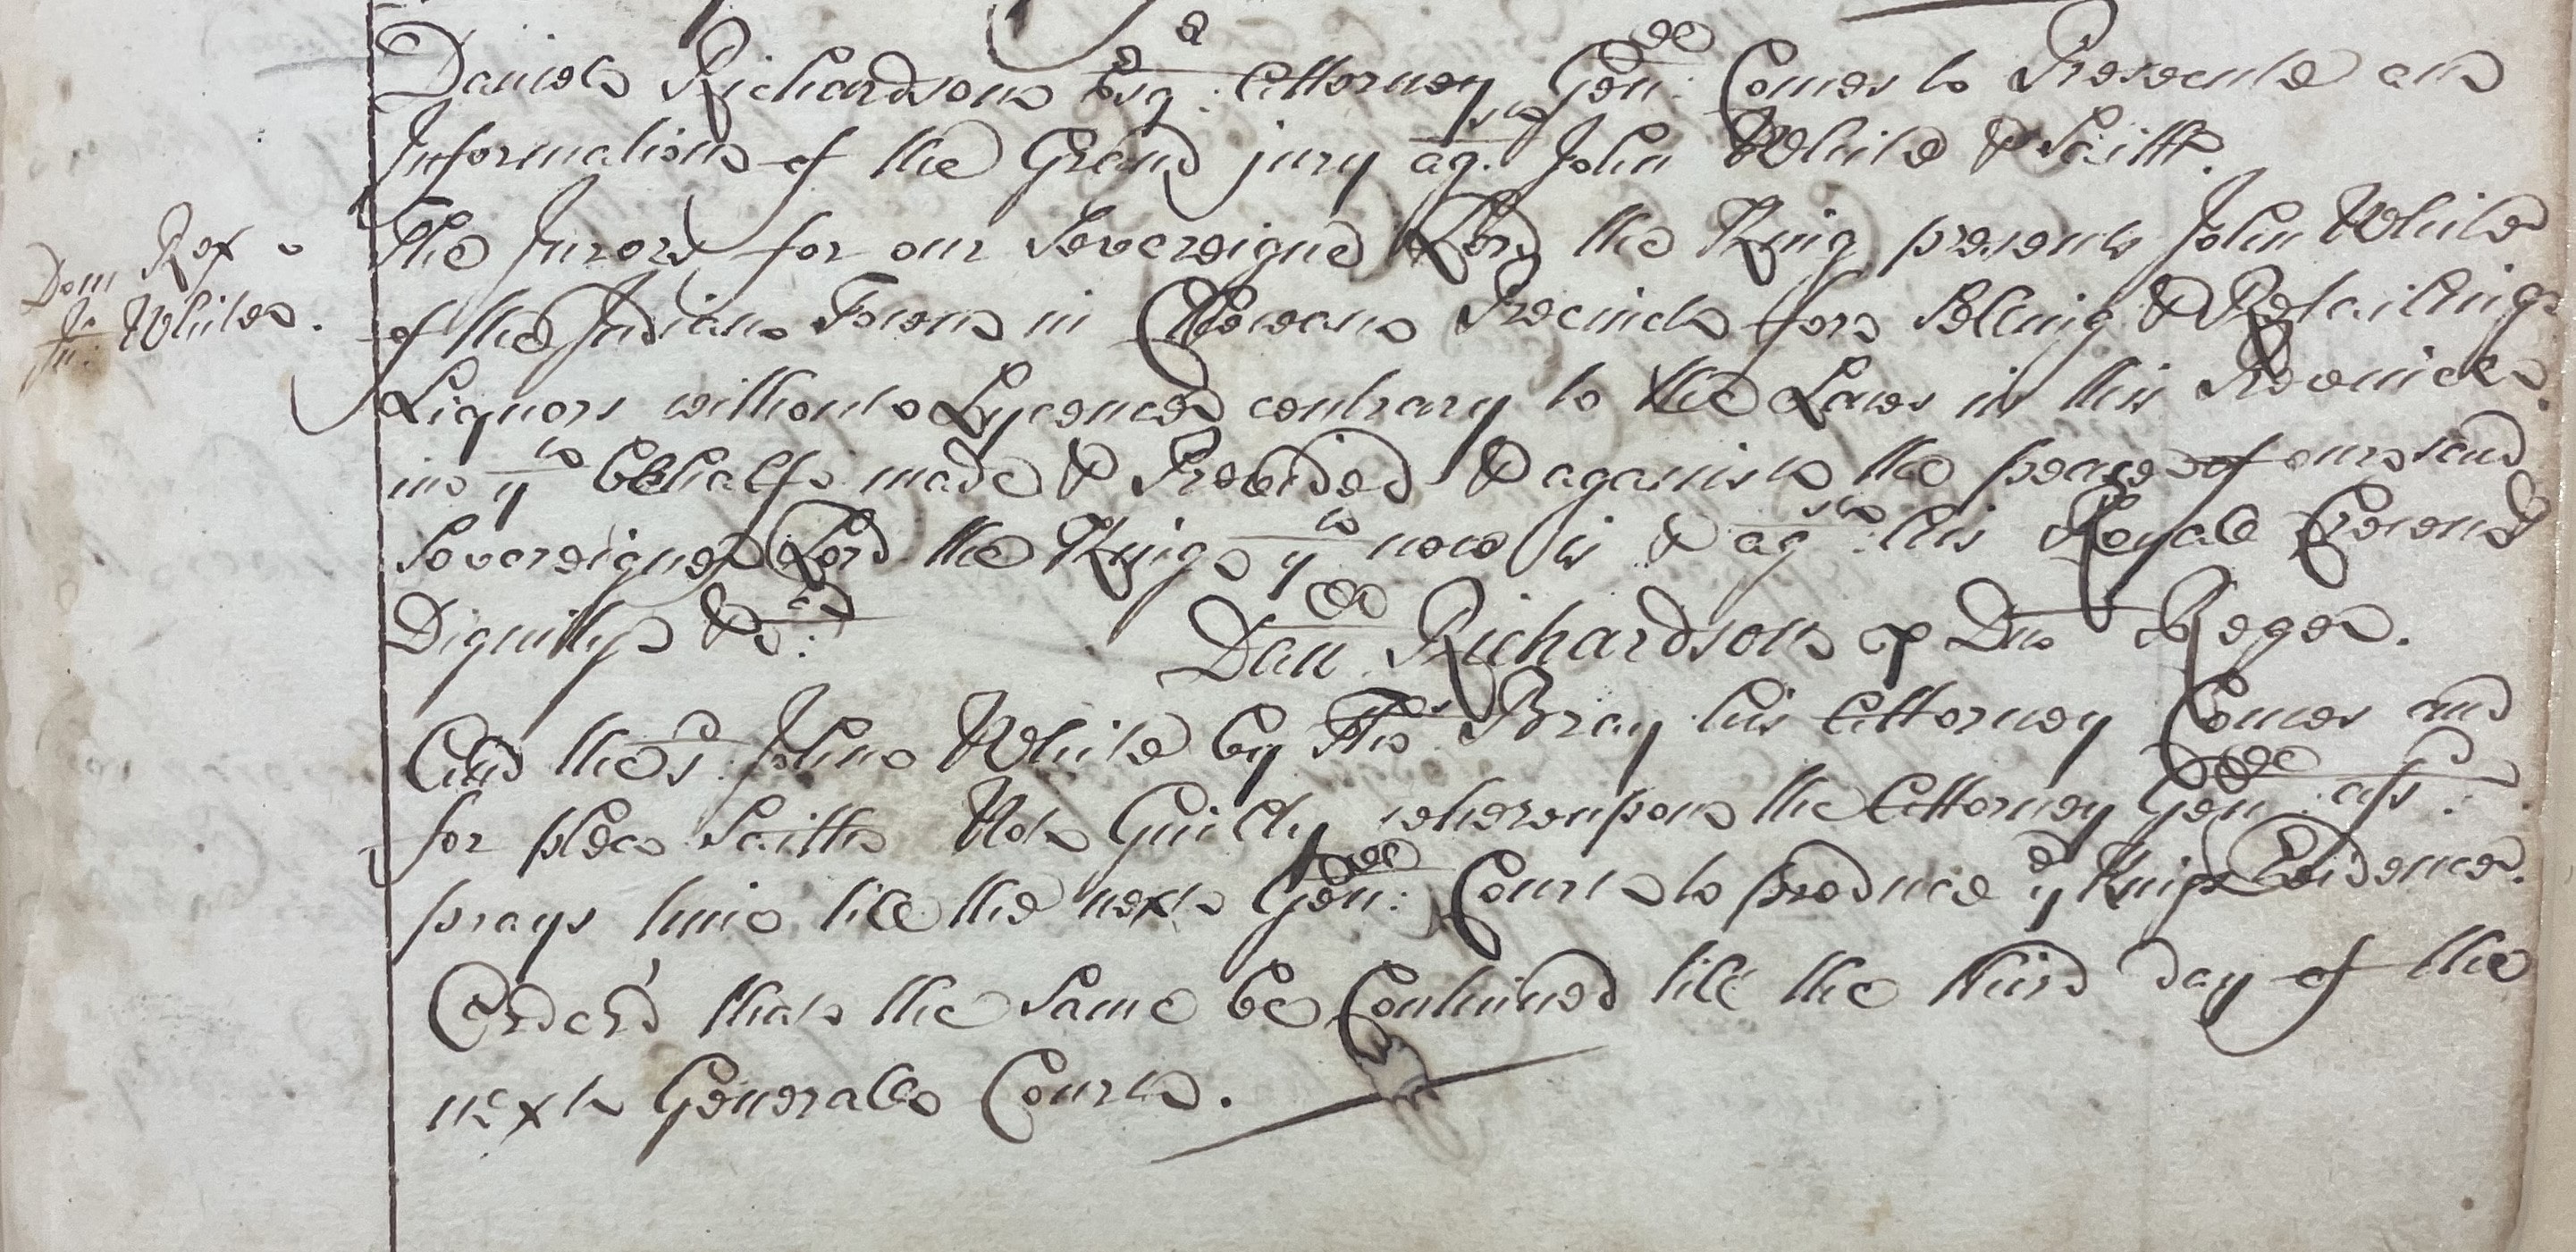 Daniel Richardson Esqr. Attorney Genll: Comes to Prosecute an
Information of the Grand jury agst. John White & Saith.
The Jurors for our Sovereigne Lord the King presents John White
Dom Rex
vs
Jn: White.
of the Indian Town in Chowan Precinct for Selling & Retailing
Liquors without Lycence contrary to the Laws in this Province
in yt behalf made & Provided & against the peace of our said
Sovereigne Lord the King yt now is & agst: his Royall Crown &
Dignity &ca: Danll Richardson p Dno Rege.
And the sd: John White by Thos Bray his Attorney Comes and
for plea Saith Not Guilty whereupon the Attorney Genll: afsd:
prays time till the next Genll: Court to produce ye Kings Evidence.
Order'd that the Same be Continued till the third day of the
next Generall Court.